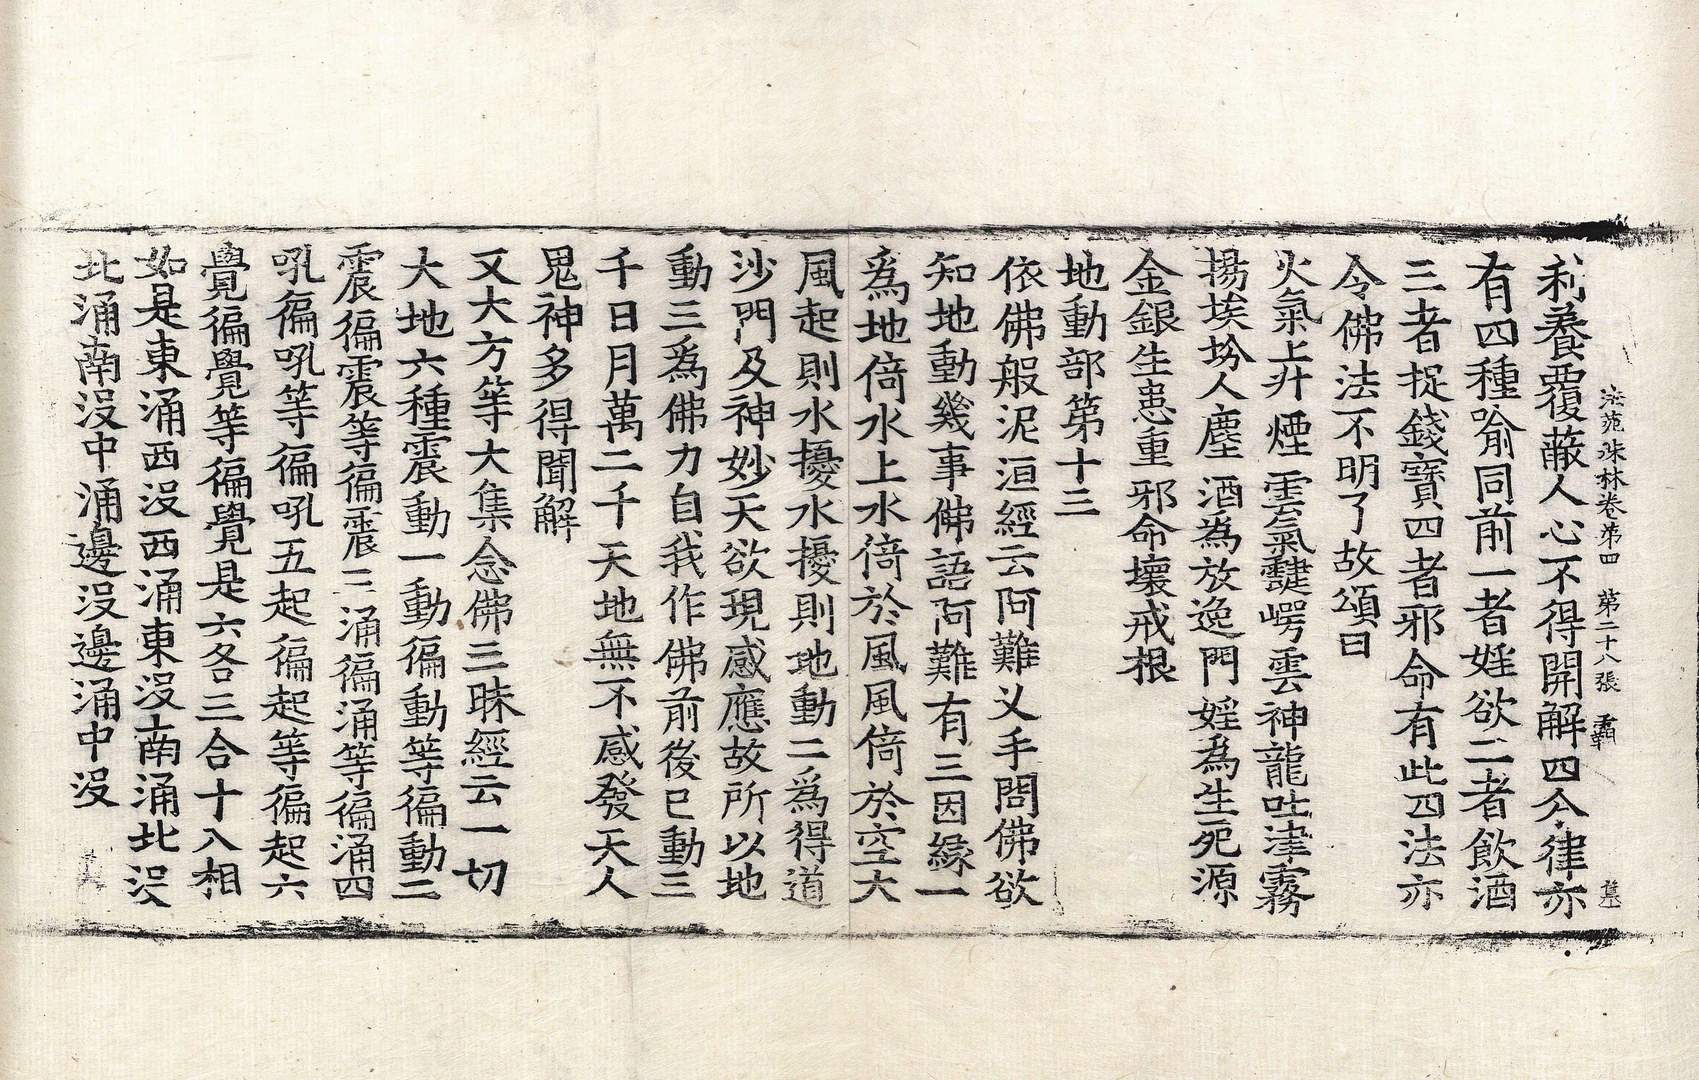 法苑珠林卷第四　第二十八張　覇
利養覆蔽人心不得開解四分律亦
有四種喻同前一者婬欲二者飲酒
三者捉錢寶四者邪命有此四法亦
令佛法不明了故頌曰
火氣上升煙雲氣靆崿雲神龍吐津霧
揚埃坋人塵酒為放逸門婬為生死源
金銀生患重邪命壞戒根
地動部第十三
依佛般泥洹經云阿難叉手問佛欲
知地動幾事佛語阿難有三因緣一
爲地倚水上水倚於風風倚於空大
風起則水擾水擾則地動二爲得道
沙門及神妙天欲現感應故所以地
動三爲佛力自我作佛前後已動三
千日月萬二千天地無不感發天人
鬼神多得聞解
又大方等大集念佛三昧經云一切
大地六種震動一動徧動等徧動二
震徧震等徧震三涌徧涌等徧涌四
吼徧吼等徧吼五起徧起等徧起六
覺徧覺等徧覺是六各三合十八相
如是東涌西沒西涌東沒南涌北沒
北涌南沒中涌邊沒邊涌中沒